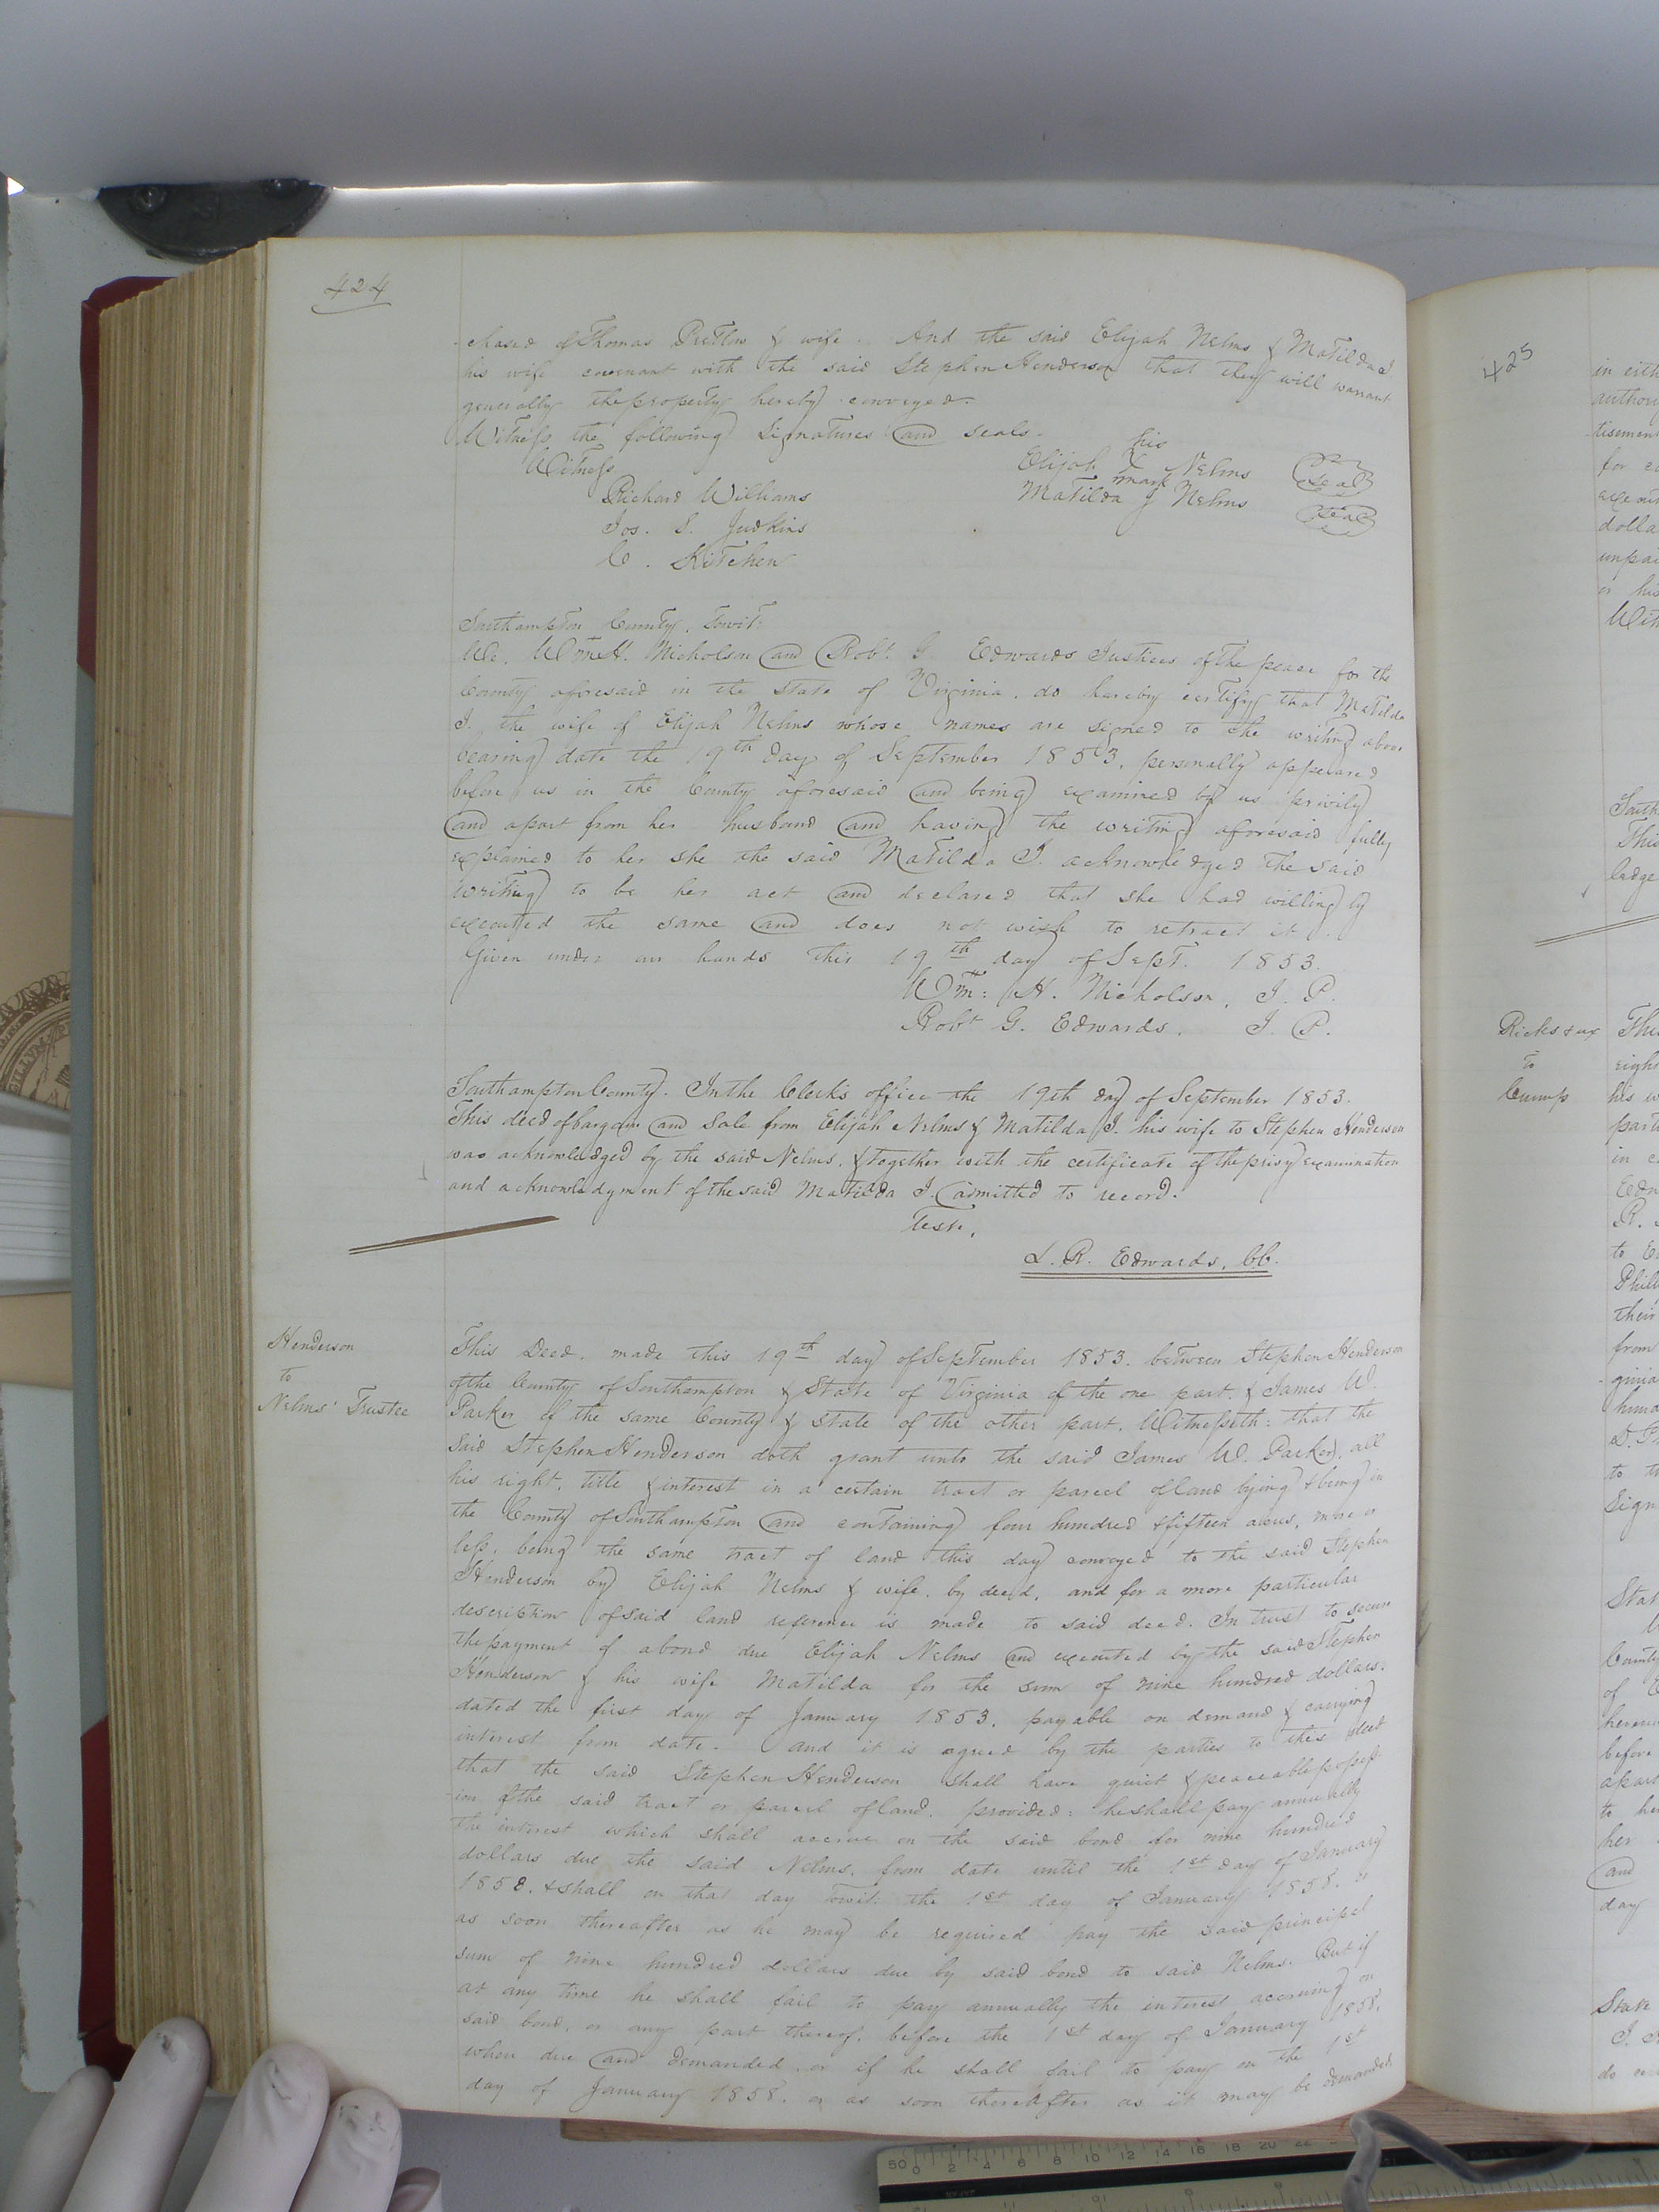 424
chased of Thomas Pretlow & wife. And the said Elijah Nelms & Matilda J.
his wife covenant with the said Stephen Henderson that they will warrant
generally the property hereby conveyed.
Witness the following signatures and seals.
Witness
his
Elijah X Nelms (Seal)
mark
Richard Williams
Matilda J Nelms (Seal)
Jos. S. Judkins
C. Kitchen
Southampton County, Towit:
We, Wm. H. Nicholson and Robt. G. Edwards Justices of the peace for the
County aforesaid in the State of Virginia, do hereby certify that Matilda
J. the wife of Elijah Nelms whose names are signed to the writing above
bearing date the 19th day of September 1853, personally appeared
before us in the County aforesaid and being examined by us privily
and apart from her husband and having the writing aforesaid fully
explained to her she the said Matilda J. acknowledged the said
writing to be her act and declared that she had willingly
executed the same and does not wish to retract it.
Given under our hands this 19th day of Sept. 1853.
Wm: H. Nicholson, J. P.
Robt G. Edwards. J. P.
Southampton County. In the Clerk's office the 19th day of September 1853.
This deed of bargain and Sale from Elijah Nelms & Matilda J. his wife to Stephen Henderson
was acknowledged by the said Nelms, & together with the certificate of the privy examination
and acknowledgment of the said Matilda J. admitted to record.
Teste,
L. R. Edwards, CC.
Henderson
to
Nelms' Trustee
This Deed, made this 19th day of September 1853. between Stephen Henderson
of the County of Southampton & State of Virginia of the one part, & James W.
Parker of the same County & state of the other part, Witnesseth: that the
said Stephen Henderson doth grant unto the said James W. Parker, all
his right, title & interest in a certain tract or parcel of land lying & being in
the County of Southampton and containing four hundred & fifteen acres, more or
less, being the same tract of land this day conveyed to the said Stephen
Henderson by Elijah Nelms & wife, by deed, and for a more particular
description of said land reference is made to said deed. In trust to secure
the payment of a bond due Elijah Nelms and executed by the said Stephen
Henderson & his wife Matilda for the sum of nine hundred dollars,
dated the first day of January 1853, payable on demand & carrying
interest from date. And it is agreed by the parties to this deed
that the said Stephen Henderson shall have quiet & peaceable possess-
-ion of the said tract or parcel of land, provided: he shall pay annually
the interest which shall accrue on the said bond for nine hundred
dollars due the said Nelms, from date until the 1st day of January
1858, & shall on that day Towit: the 1st day of January 1858. or
as soon thereafter as he may be required pay the said principal
sum of nine hundred dollars due by said bond to said Nelms. But if
at any time he shall fail to pay annually the interest accruing on
said bond, or any part thereof, before the 1st day of January 1858,
when due and demanded, or if he shall fail to pay on the 1st
day of January 1858. or as soon thereafter as it may be demanded,
425
in eith
tisement
dolla
unpai
or his
Wit
South
This
ledge
Ricks & ux
to
Camp
his w
part
in c
Edw
R.
to E
Phil
their
from
-ginia
to
Sign
Stat
County
of
before
apart
to he
her
and
day
State
do
50 0 2 4 6 8 10 12 14 16 18 20 22